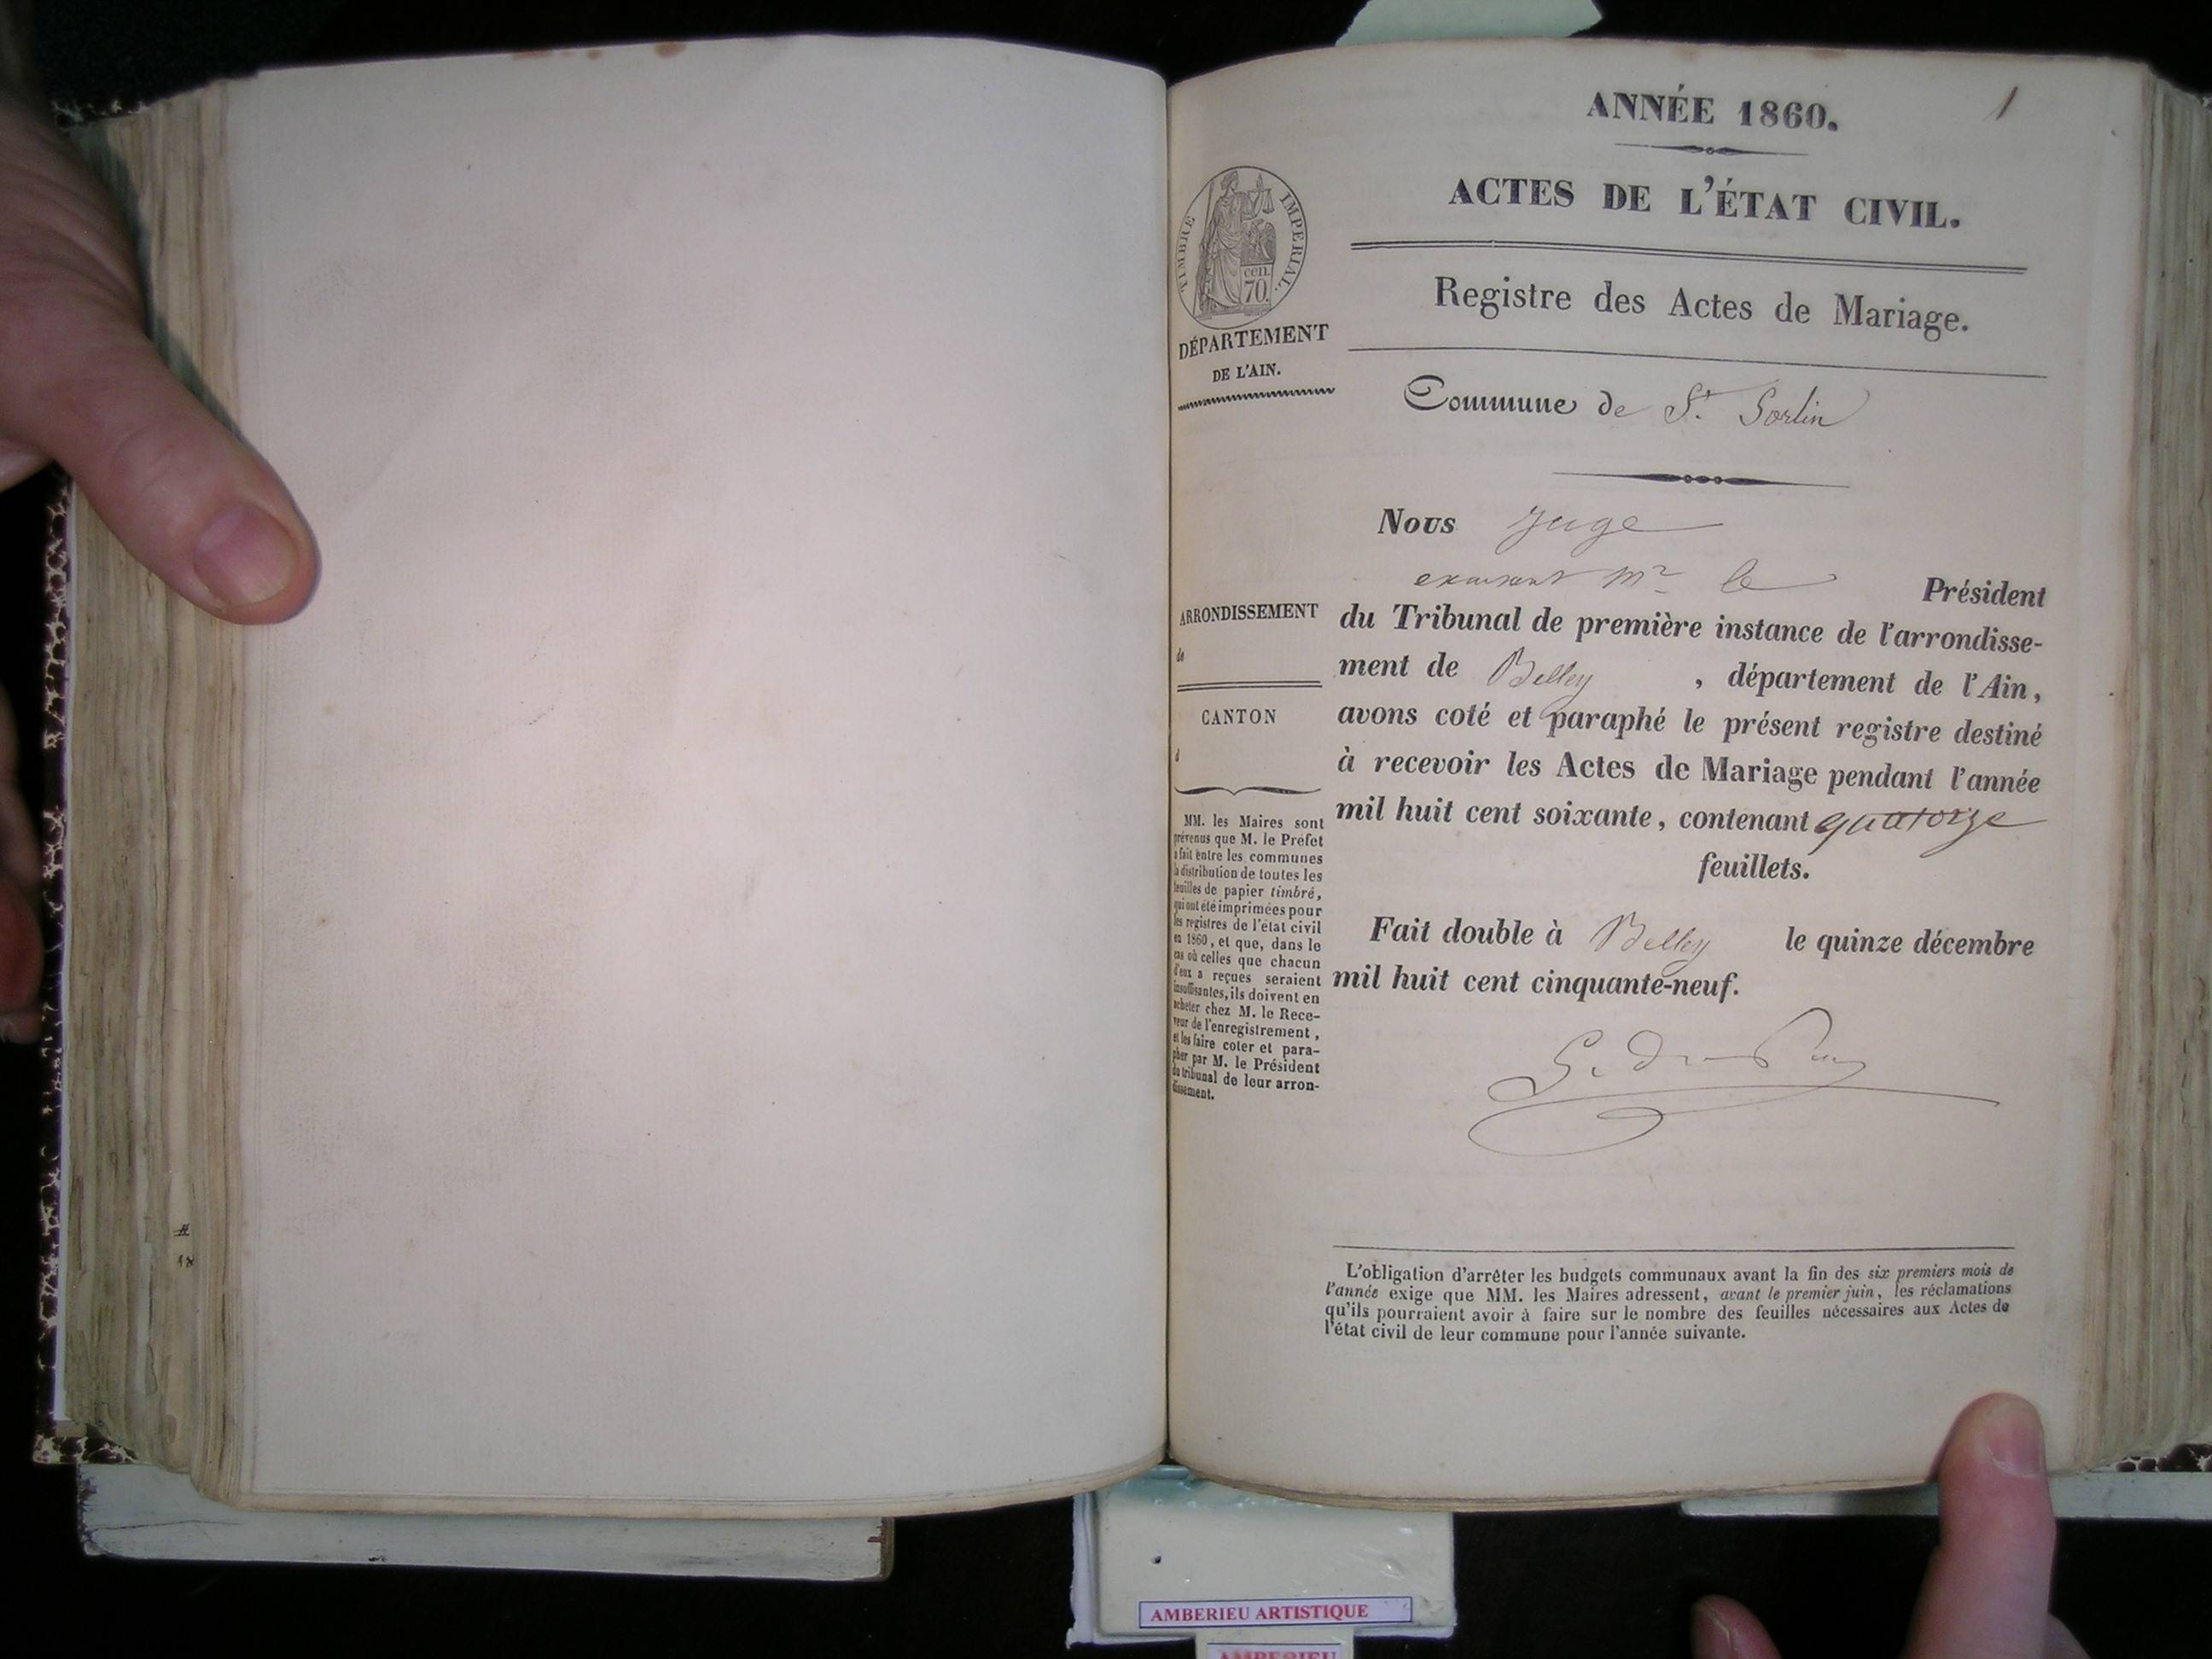 ANNÉE 1860.
1
ACTES DE L'ÉTAT CIVIL.
TIMBRE IMPERIAL.
cen.
70.
DÉPARTEMENT
DE L'AIN.
Registre des Actes de Mariage.
Commune de St. Sorlin
Nous Juge
Mr le Président
du Tribunal de première instance de l'arrondisse-
ment de Belley, département de l'Ain,
avons coté et paraphé le présent registre destiné
à recevoir les Actes de Mariage pendant l'année
mil huit cent soixante, contenant quatorze
feuillets.
Fait double à Belley le quinze décembre
mil huit cent cinquante-neuf.
ARRONDISSEMENT
de
CANTON
d
MM. les Maires sont
prévenus que M. le Préfet
a fait entre les communes
la distribution de toutes les
feuilles de papier timbré,
qui ont été imprimées pour
les registres de l'état civil
en 1860, et que, dans le
cas où celles que chacun
d'eux a reçues seraient
insuffisantes, ils doivent en
acheter chez M. le Rece-
veur de l'enregistrement,
et les faire coter et para-
pher par M. le Président
du tribunal de leur arron-
dissement.
L'obligation d'arrêter les budgets communaux avant la fin des six premiers mois de
l'année exige que MM. les Maires adressent, avant le premier juin, les réclamations
qu'ils pourraient avoir à faire sur le nombre des feuilles nécessaires aux Actes de
l'état civil de leur commune pour l'année suivante.
AMBERIEU ARTISTIQUE
AMBERIEU